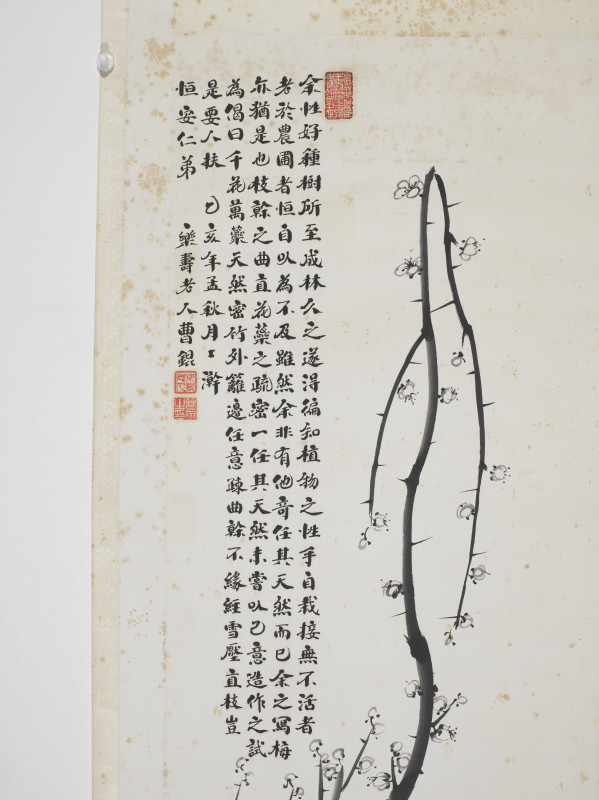 余性好種樹所至成林久之遂得徧知植物之性手自栽接無不活者
老於農圃者恒自以為不及雖然余非有他奇任其天然而已余之寫梅
亦猶是也枝榦之曲直花蘂之疏密一任其天然未嘗以己意造作之試
為偈曰千花萬蘂天然密竹外籬邊任意疎曲榦不緣經雪壓直枝豈
是要人扶 乙亥年孟秋月
恒安仁弟 樂壽老人曹錕